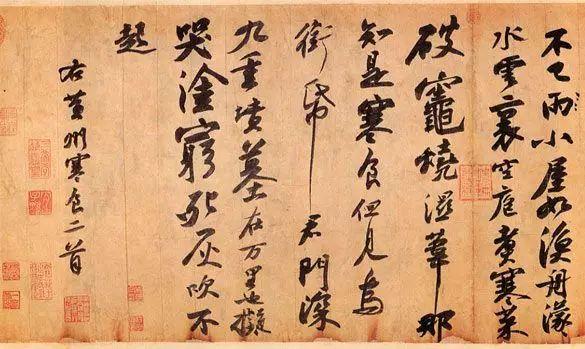 不已雨小屋如漁舟濛〻
水雲裏空庖煮寒菜
破竈燒濕葦那
知是寒食但見烏
銜帋君門深
九重墳墓在万里也擬
哭塗窮死灰吹不
起
右黃州寒食二首